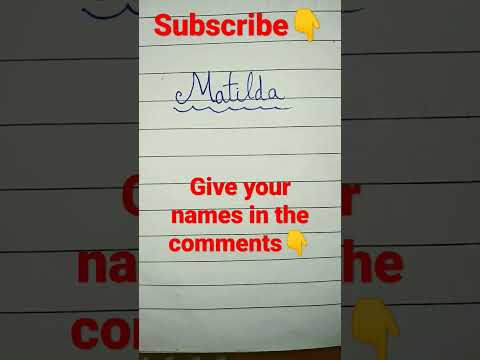 Subscribe👇
Matilda
Give your
names in the
comments👇